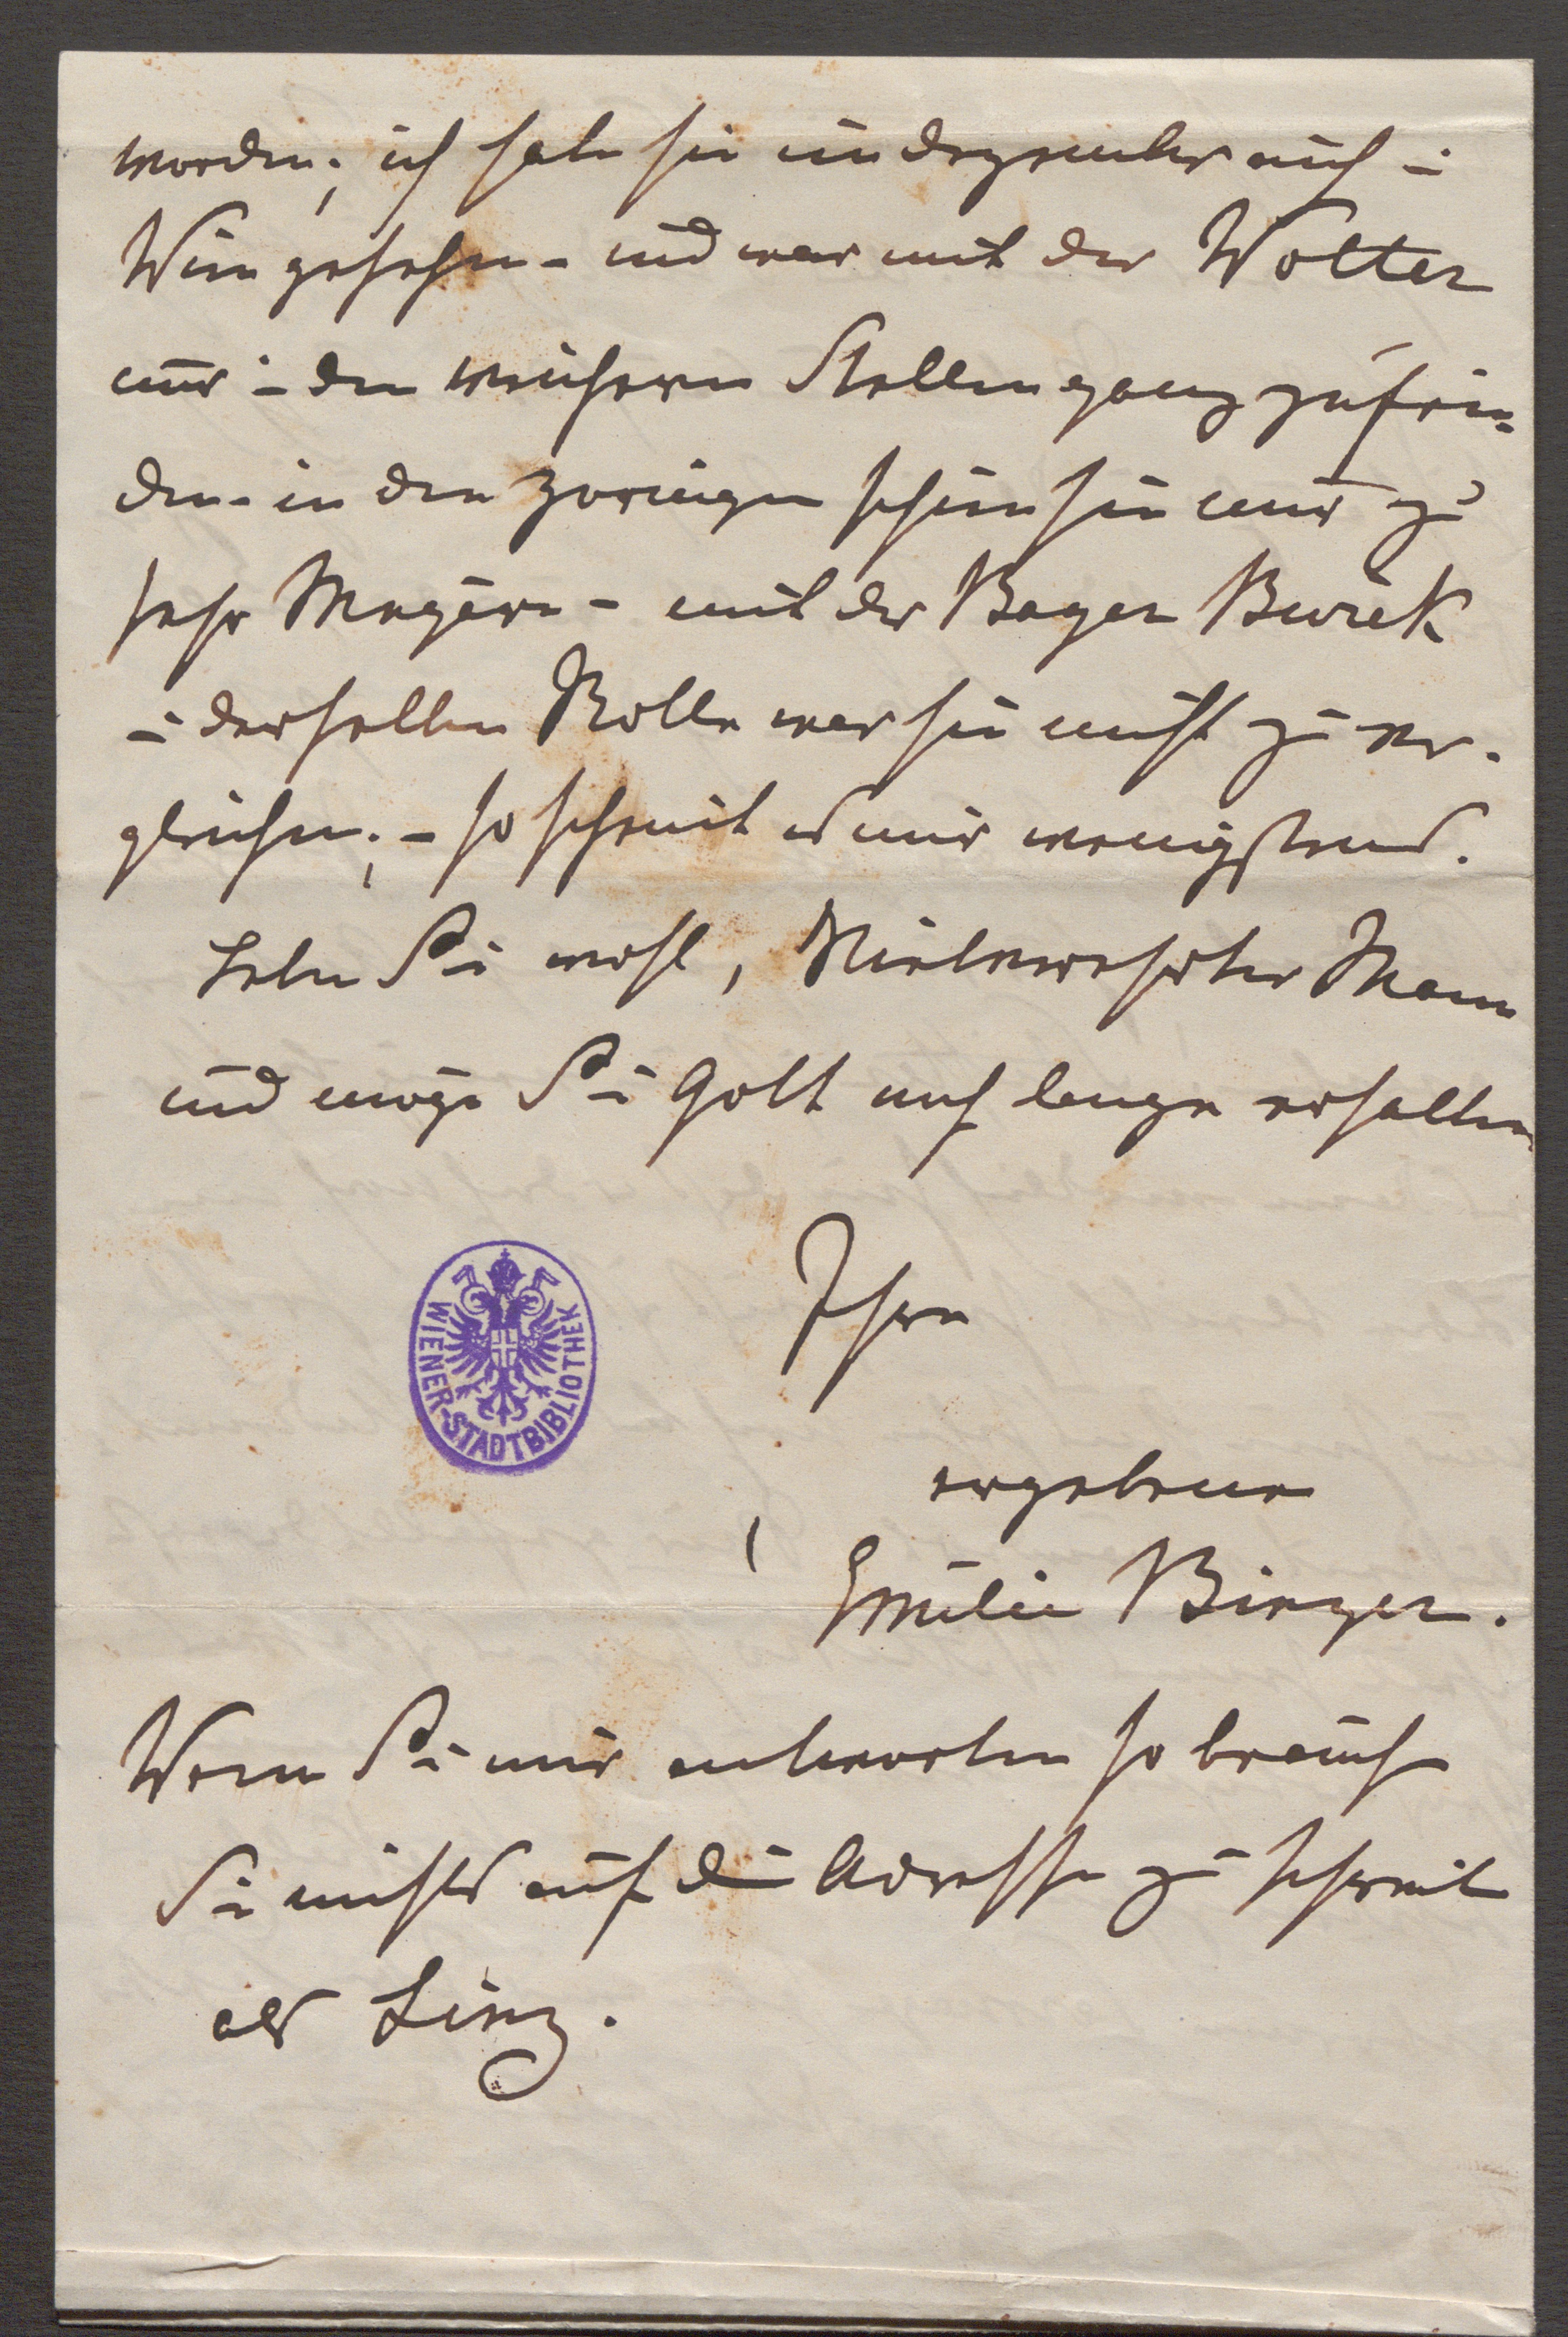 worden; ich habe sie im Dezember auch in
Wien gesehen - und war mit der Wolter
nur in den weicheren Stellen ganz zufrie-
den - in den zornigen schien sie mir zu
sehr Megäre - mit der Bayer Bürck
in derselben Rolle war sie nicht zu ver-
gleichen; - so scheint es mir wenigstens.
Leben Sie wohl, Vielverehrter Mann
und möge Sie Gott noch lange erhalten
Ihre
WIENER-STADTBIBLIOTHEK
ergebene
Emilie Binzer.
Wenn Sie mir antworten so brauche
Sie nichts auf die Adresse zu schreib
als Linz.